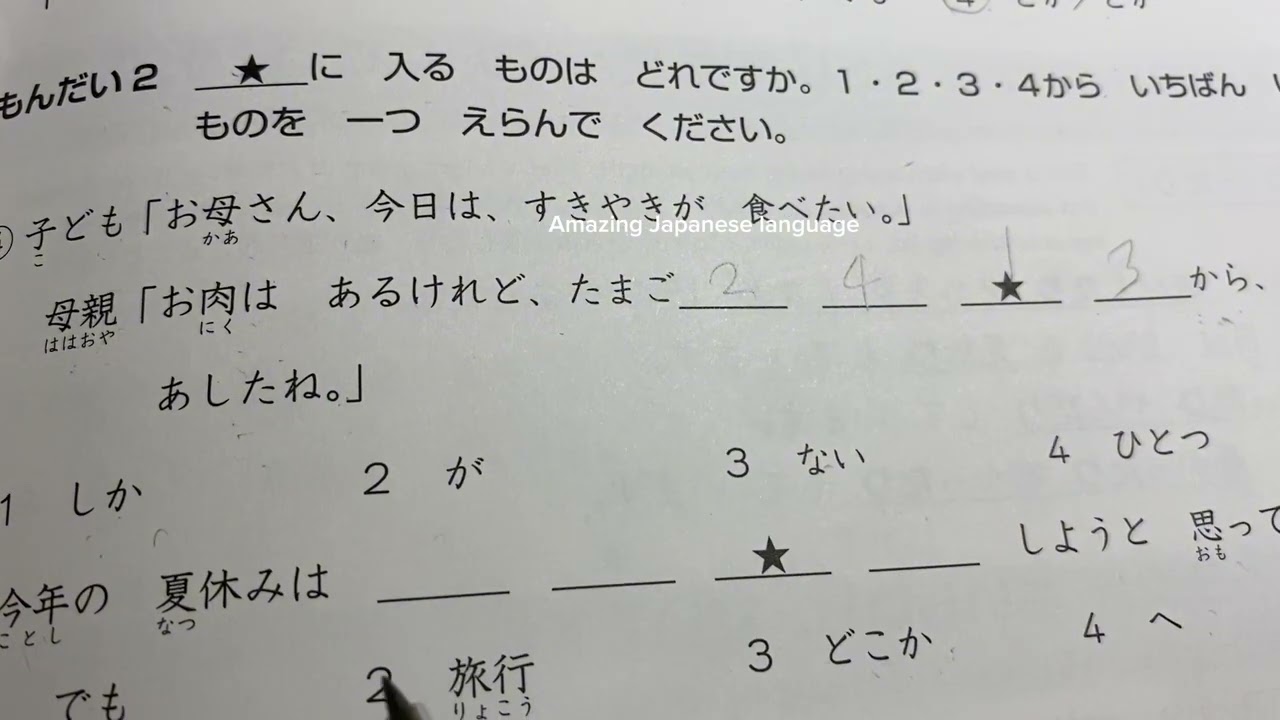 もんだい2 ★に 入る ものは どれですか。1・2・3・4から いちばん
ものを 一つ えらんで ください。
子ども「お母さん、今日は、すきやきが 食べたい。」
こ かあ
Amazing Japanese language
母親「お肉は あるけれど、たまご 2 4 ★ 1 3 から、
ははおや にく
あしたね。」
1 しか 2 が 3 ない 4 ひとつ
今年の 夏休みは ★ しようと 思って
ことし なつ おも
でも 2 旅行 3 どこか 4 へ
りょこう